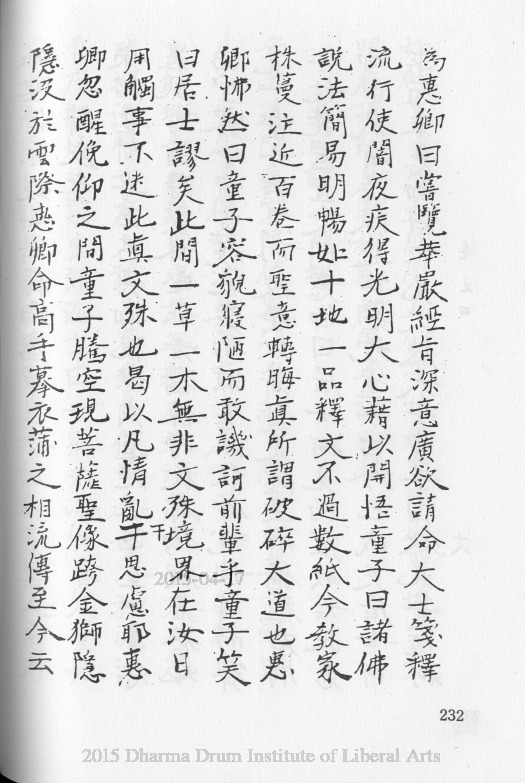 為惠卿曰嘗覽華嚴經旨深意廣欲請命大士箋釋
流行使闇夜疾得光明大心藉以開悟童子曰諸佛
說法簡易明暢如十地一品釋文不過數紙今教家
株蔓注近百卷而聖意轉晦眞所謂破碎大道也惠
卿怫然曰童子容貌寢陋而敢譏訶前輩乎童子笑
曰居士謬矣此間一草一木無非文殊境界在汝日
用觸事不迷此眞文殊也曷以凡情亂干思慮耶惠
卿忽醒俛仰之間童子騰空現菩薩聖像跨金獅隱
隱沒於雲際惠卿命高手摹衣蒲之相流傳至今云
干
232
2015-04-
2015 Dharma Drum Institute of Liberal Arts